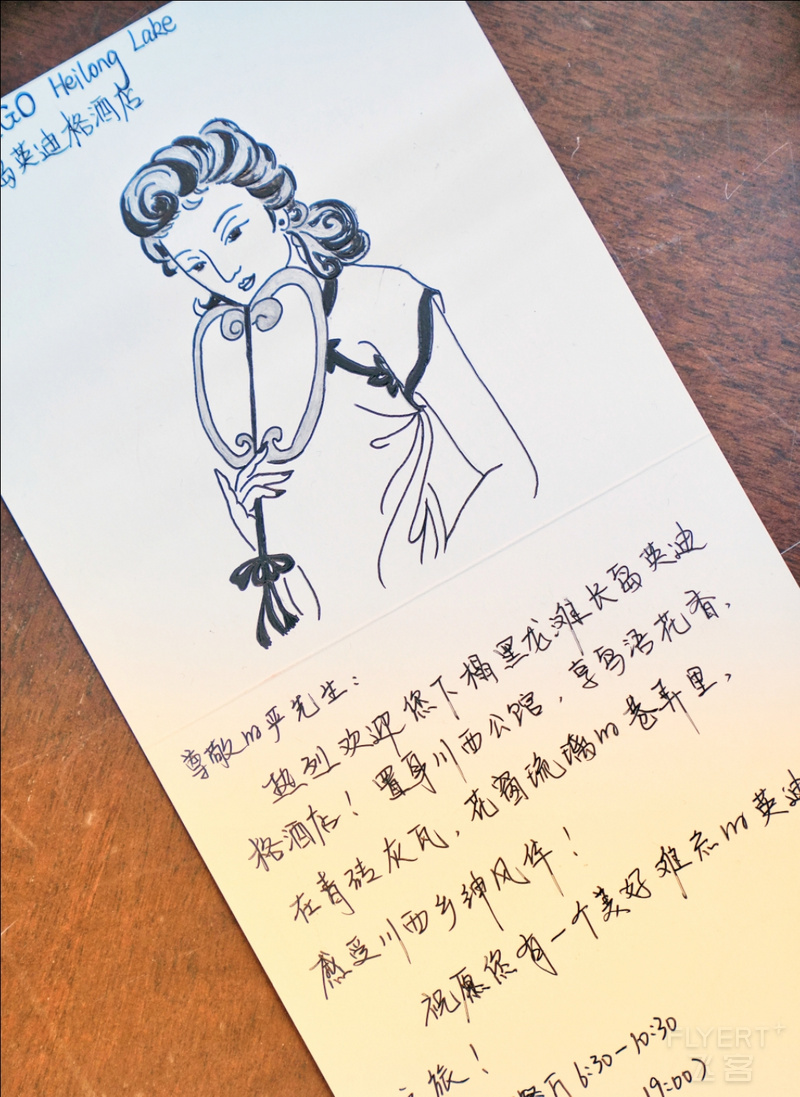 GO Heilong Lake
岛英迪格酒店
尊敬的严先生：
热烈欢迎您下榻黑龙滩长岛英迪
格酒店！置身川西公馆，享鸟语花香、
在青砖灰瓦，花窗琉璃的巷弄里，
感受川西乡绅风华！
祝愿您有一个美好难忘的英迪
之旅！
6:30-10:30
19:00)
FLYERT+
飞客